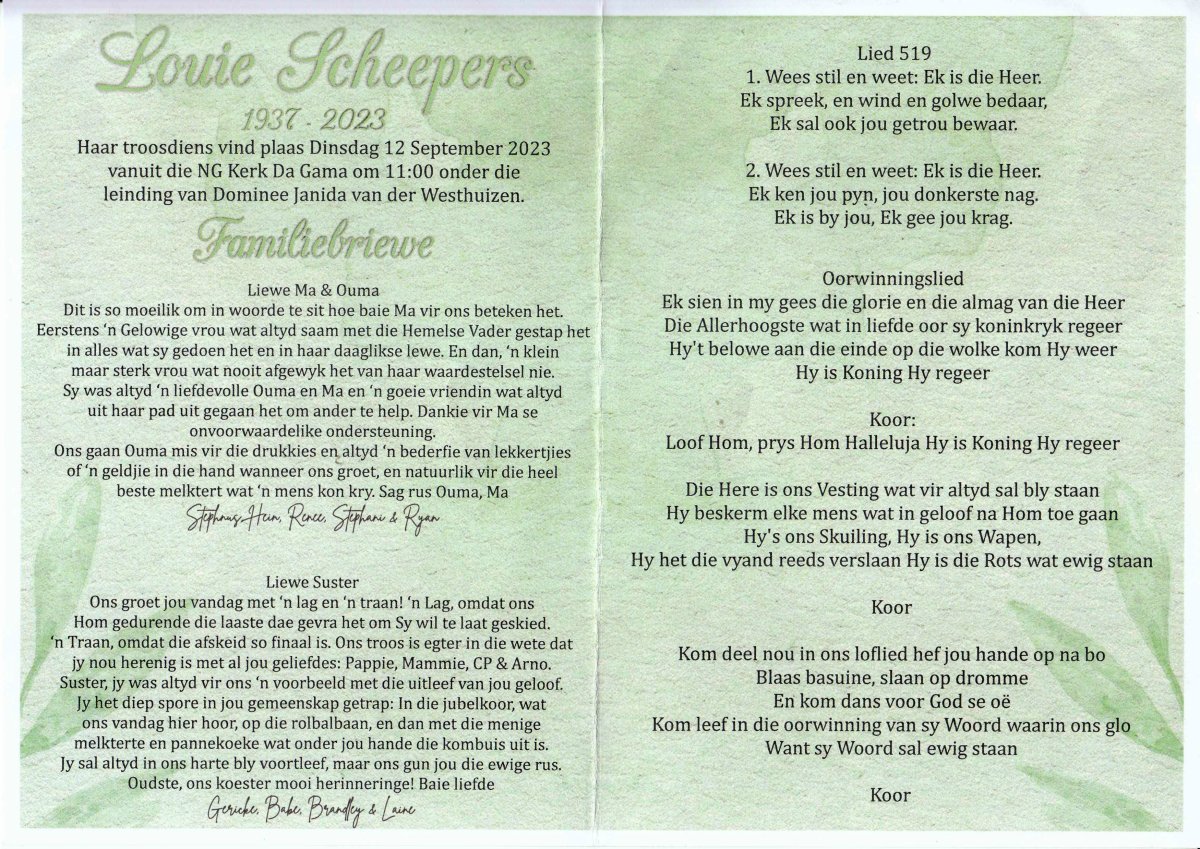 Louie Scheepers
1937 - 2023
Haar troosdiens vind plaas Dinsdag 12 September 2023
vanuit die NG Kerk Da Gama om 11:00 onder die
leinding van Dominee Janida van der Westhuizen.
Familiebriewe
Liewe Ma & Ouma
Dit is so moeilik om in woorde te sit hoe baie Ma vir ons beteken het.
Eerstens ‘n Gelowige vrou wat altyd saam met die Hemelse Vader gestap het
in alles wat sy gedoen het en in haar daaglikse lewe. En dan, ‘n klein
maar sterk vrou wat nooit afgewyk het van haar waardestelsel nie.
Sy was altyd ‘n liefdevolle Ouma en Ma en ‘n goeie vriendin wat altyd
uit haar pad uit gegaan het om ander te help. Dankie vir Ma se
onvoorwaardelike ondersteuning.
Ons gaan Ouma mis vir die drukkies en altyd ‘n bederfie van lekkertjies
of ‘n geldjie in die hand wanneer ons groet, en natuurlik vir die heel
beste melktert wat ‘n mens kon kry. Sag rus Ouma, Ma
Stephnus,Hein, Renee, Stephani & Ryan
Liewe Suster
Ons groet jou vandag met ‘n lag en ‘n traan! ‘n Lag, omdat ons
Hom gedurende die laaste dae gevra het om Sy wil te laat geskied.
‘n Traan, omdat die afskeid so finaal is. Ons troos is egter in die wete dat
jy nou herenig is met al jou geliefdes: Pappie, Mammie, CP & Arno.
Suster, jy was altyd vir ons ‘n voorbeeld met die uitleef van jou geloof.
Jy het diep spore in jou gemeenskap getrap: In die jubelkoor, wat
ons vandag hier hoor, op die rolbalbaan, en dan met die menige
melkterte en pannekoeke wat onder jou hande die kombuis uit is.
Jy sal altyd in ons harte bly voortleef, maar ons gun jou die ewige rus.
Oudste, ons koester mooi herinneringe! Baie liefde
Gericke, Babe, Brandley & Laine
Lied 519
1. Wees stil en weet: Ek is die Heer.
Ek spreek, en wind en golwe bedaar,
Ek sal ook jou getrou bewaar.
2. Wees stil en weet: Ek is die Heer.
Ek ken jou pyn, jou donkerste nag.
Ek is by jou, Ek gee jou krag.
Oorwinningslied
Ek sien in my gees die glorie en die almag van die Heer
Die Allerhoogste wat in liefde oor sy koninkryk regeer
Hy't belowe aan die einde op die wolke kom Hy weer
Hy is Koning Hy regeer
Koor:
Loof Hom, prys Hom Halleluja Hy is Koning Hy regeer
Die Here is ons Vesting wat vir altyd sal bly staan
Hy beskerm elke mens wat in geloof na Hom toe gaan
Hy's ons Skuiling, Hy is ons Wapen,
Hy het die vyand reeds verslaan Hy is die Rots wat ewig staan
Koor
Kom deel nou in ons loflied hef jou hande op na bo
Blaas basuine, slaan op dromme
En kom dans voor God se oë
Kom leef in die oorwinning van sy Woord waarin ons glo
Want sy Woord sal ewig staan
Koor